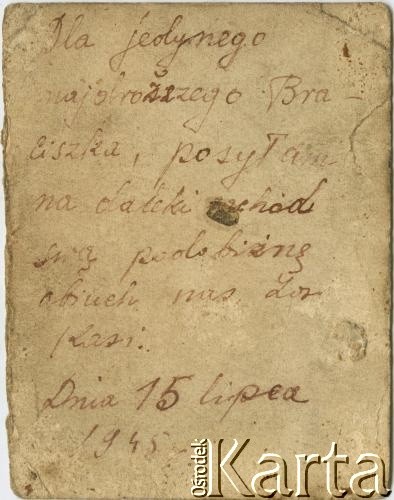 Dla jedynego
najdroższego Bra-
ciszka, posyłam
na daleki wchód
swą podobiznę
abiuch nas Los
Kasi.
Dnia 15 lipca
1945
Ośrodek
Karta